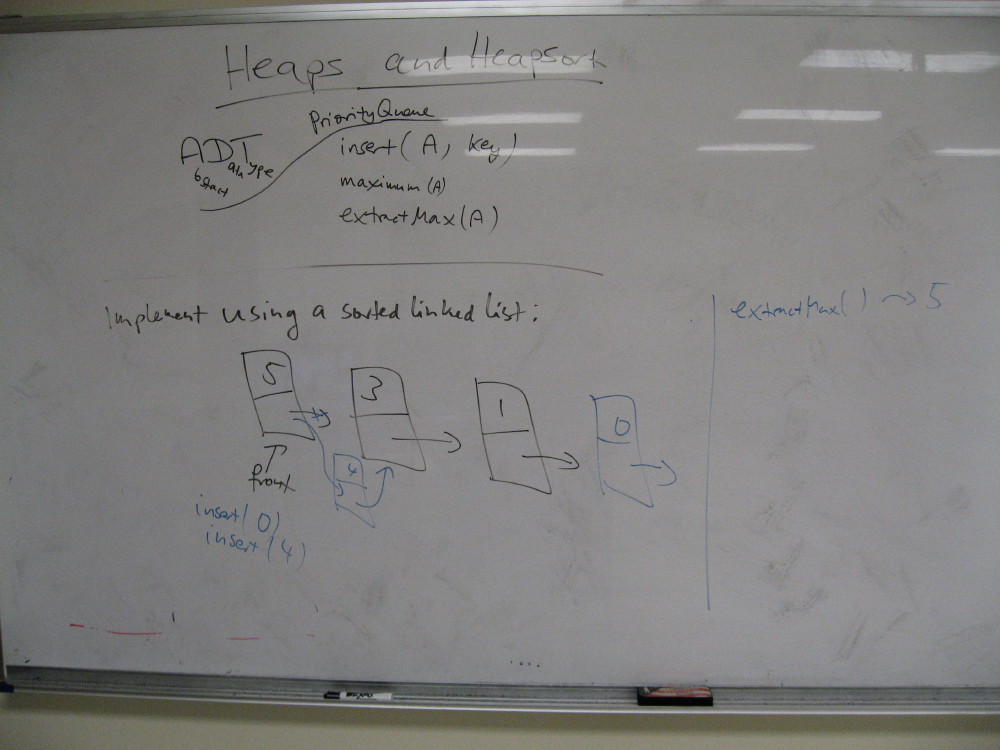 Heaps and Heapsort
PriorityQueue
ADT
bstract ata ype
insert(A, key)
maximum(A)
extractMax(A)
Implement using a sorted linked list:
extractMax() → 5
5
3
1
0
4
front
insert(0)
insert(4)